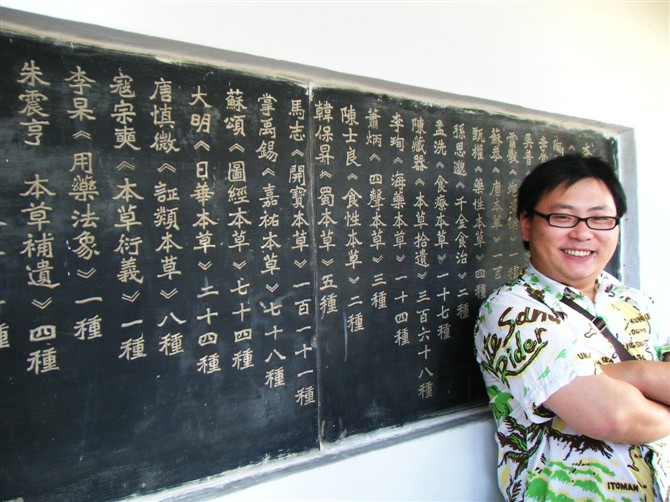 吳普
雷斅
蘇恭《唐本草》一百
甄權《藥性本草》四種
孫思邈《千金食治》
孟詵《食療本草》一十七種
陳藏器《本草拾遺》三百六十八種
李珣《海藥本草》一十四種
蕭炳《四聲本草》三種
陳士良《食性本草》二種
韓保昇《蜀本草》五種
馬志《開寶本草》一百一十一種
掌禹錫《嘉祐本草》七十八種
蘇頌《圖經本草》七十四種
大明《日華本草》二十四種
唐慎微《証類本草》八種
寇宗奭《本草衍義》一種
李杲《用藥法象》一種
朱震亨 本草補遺》四種
Sand
Rider
ITOMAN